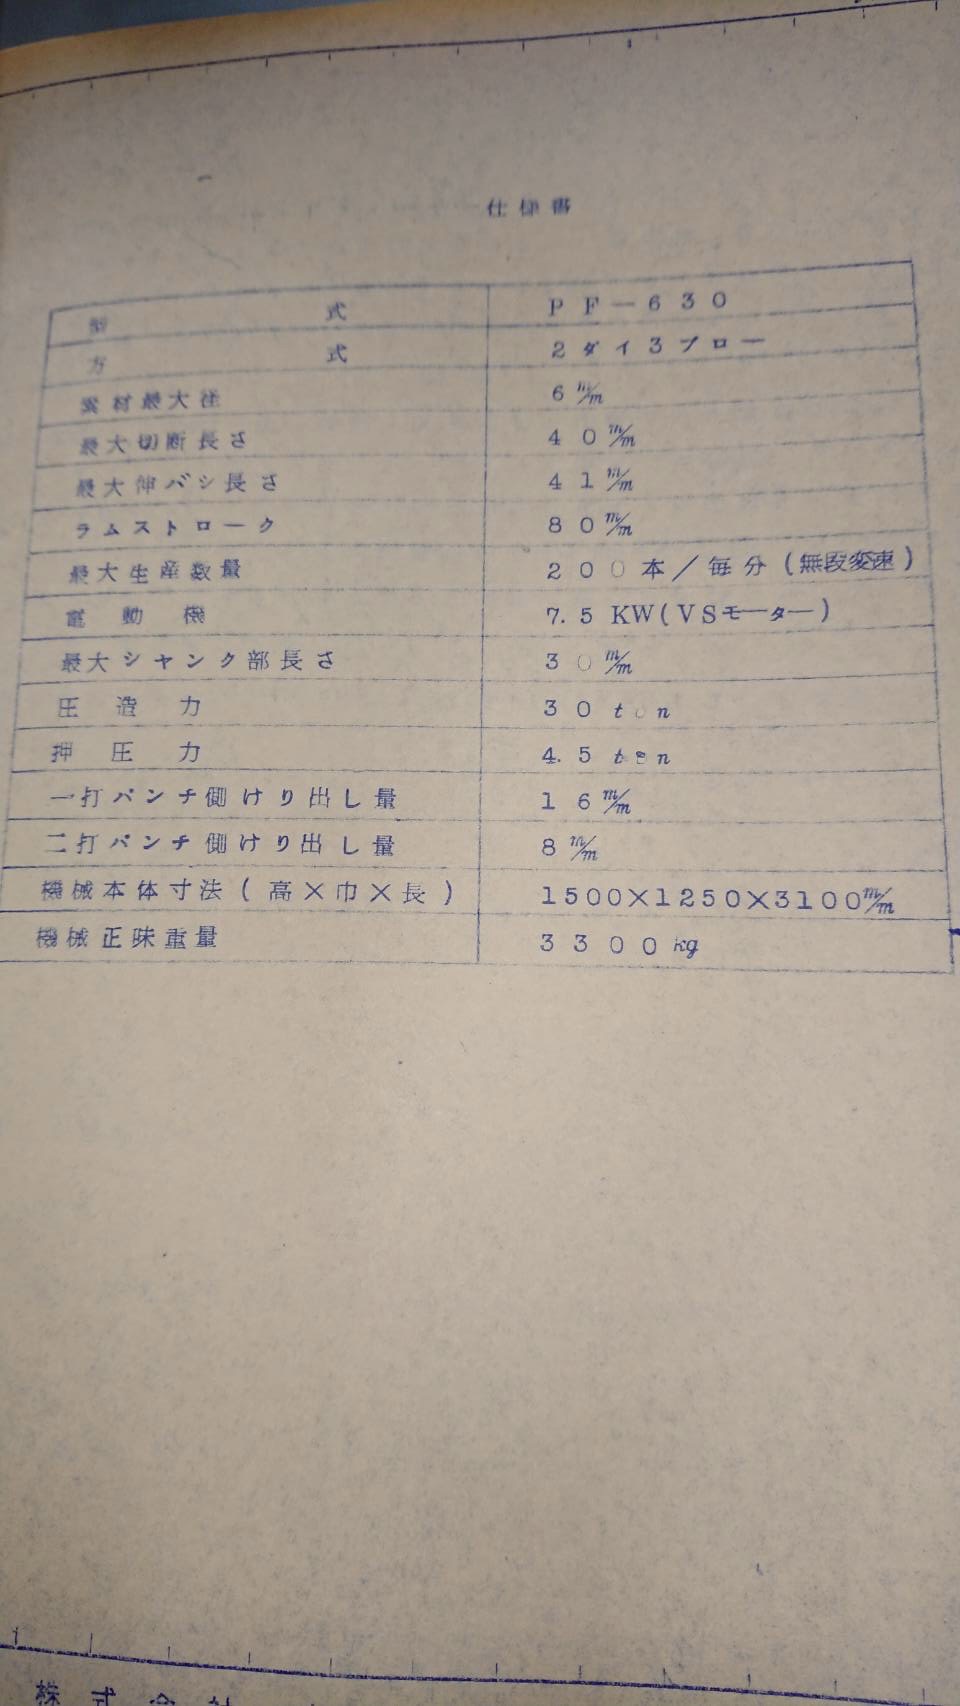 仕様書
型式 PF-630
方式 2ダイ3ブロー
素材最大径 6m/m
最大切断長さ 40m/m
最大伸バシ長さ 41m/m
ラムストローク 80m/m
最大生産数量 200本/毎分(無段変速)
電動機 7.5KW(VSモーター)
最大シャンク部長さ 30m/m
圧造力 30ton
押圧力 4.5ton
一打パンチ側けり出し量 16m/m
二打パンチ側けり出し量 8m/m
機械本体寸法(高×巾×長) 1500×1250×3100m/m
機械正味重量 3300kg
株式会社